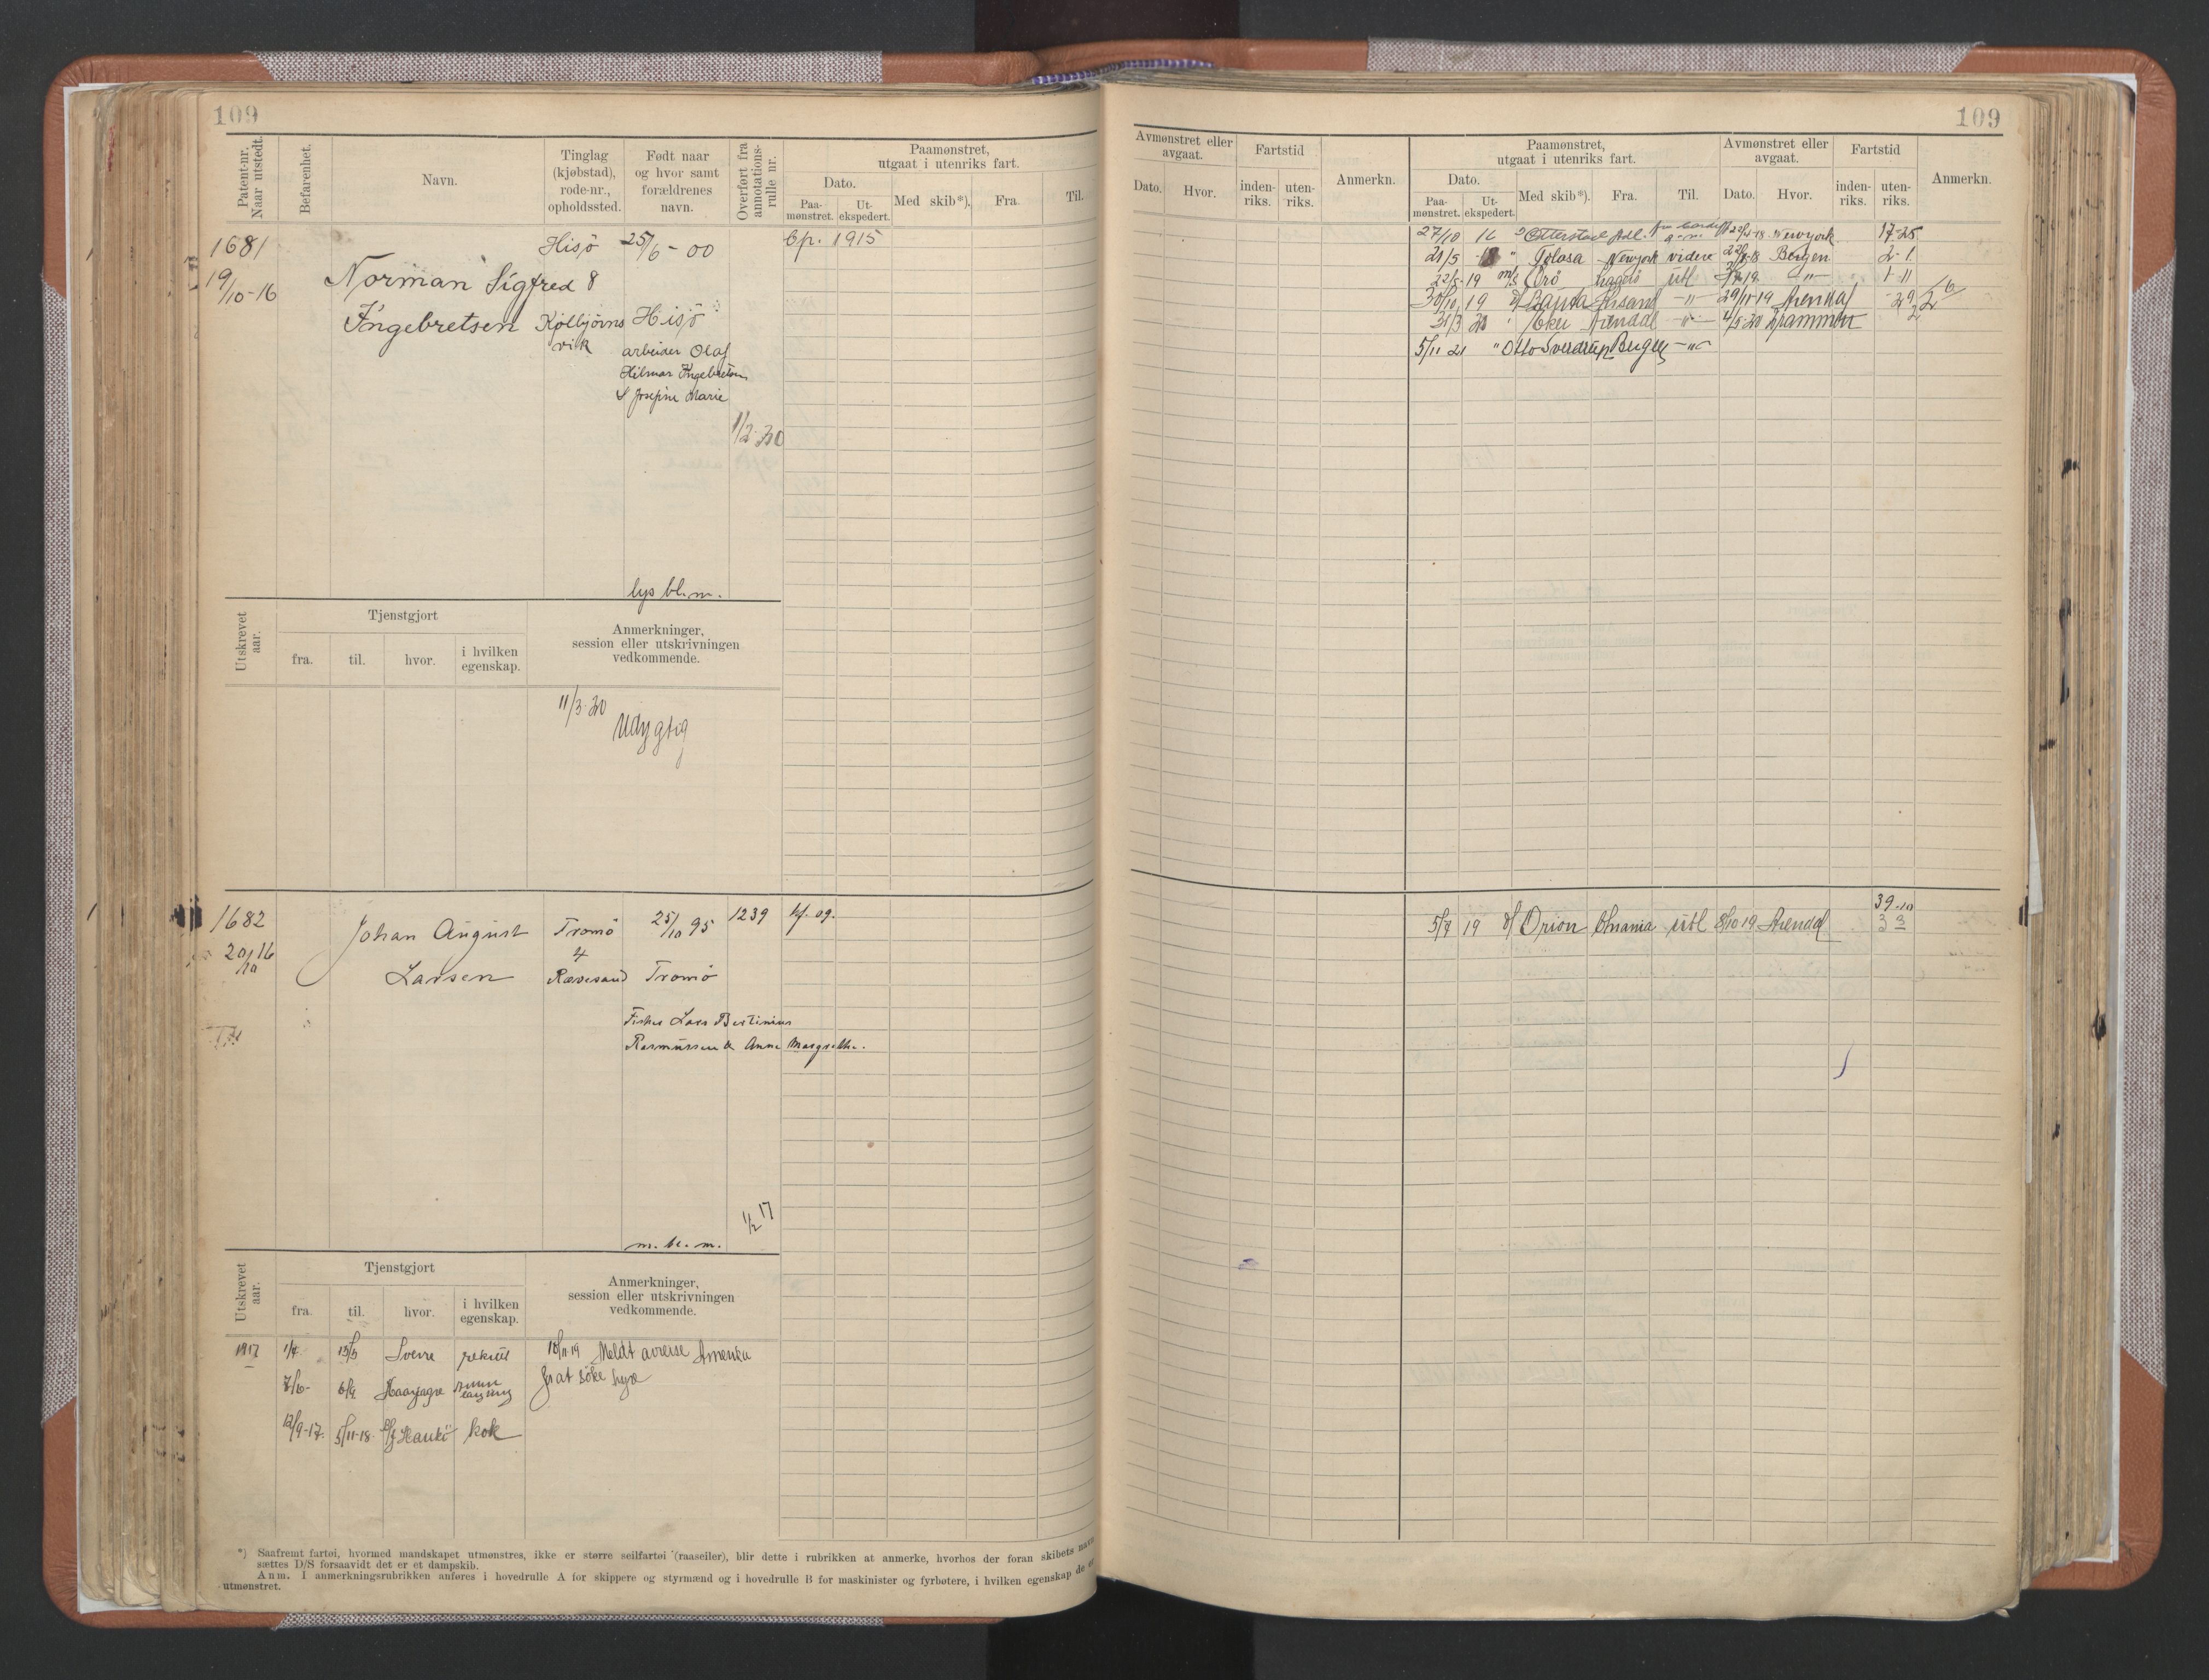 109
Patent-nr. Naar utstedt.
Befarenhet.
Navn.
Tinglag (kjøbstad), rode-nr., opholdssted.
Født naar og hvor samt forældrenes navn.
Overført fra annotations-rulle nr.
Paamønstret, utgaat i utenriks fart.
Dato.
Paa-mønstret.
Ut-ekspedert.
Med skib*).
Fra.
Til.
1681
19/10-16
Norman Sigfred
Ingebretsen
Hisö
8
Kolbjörns
vik
25/6-00
Hisö
arbeider Olaf
Hilmar Ingebretsen
& Josefine Marie
1/2-20
lys bl. m.
1915
Utskrevet aar.
Tjenstgjort
fra.
til.
hvor.
i hvilken egenskap.
Anmerkninger, session eller utskrivningen vedkommende.
11/3-20
Udygtig
1682
20/10 16
Johan August
Larsen
Tromö
4
Rævesand
25/10 95
Tromö
Fisker Lars Bertinius
Rasmussen & Anne Margrethe.
1239
kf. 09.
1/2 17
m. bl. m.
Utskrevet aar.
Tjenstgjort
fra.
til.
hvor.
i hvilken egenskap.
Anmerkninger, session eller utskrivningen vedkommende.
1917 1/4 15/5 Sverre rekrut
7/6- 6/9 Haarfagre
12/9-17. 5/11-18. Hankö kok
18/11-19 Meldt avreise Amerika
for at söke hyre
*) Saafremt fartøi, hvormed mandskapet utmønstres, ikke er større seilfartøi (raaseiler), blir dette i rubrikken at anmerke, hvorhos der foran skibets navn
sættes D/S forsaavidt det er et dampskib.
Anm. I anmerkningsrubrikken anføres i hovedrulle A for skippere og styrmænd og i hovedrulle B for maskinister og fyrbøtere, i hvilken egenskap de er
utmønstret.
109
Avmønstret eller avgaat.
Dato.
Hvor.
Fartstid
inden-riks.
uten-riks.
Anmerkn.
Paamønstret, utgaat i utenriks fart.
Dato.
Paa-mønstret.
Ut-ekspedert.
Med skib*).
Fra.
Til.
Avmønstret eller avgaat.
Dato.
Hvor.
Fartstid
inden-riks.
uten-riks.
Anmerkn.
27/10 16 Otterstad Newyork 17-25
21/5 18 " Tolosa Newyork videre Bergen 2-1
22/5-19 m/s Orö utl -"- 1-11
30/10 19 Bauta Krsand -"- 29/11-19 Arendal -29
31/3 20 Arendal -"- 4/5-20 Drammen
5/11 21 " Otto Sverdrup Bergen -"-
39-10
5/7 19 Orion Chrania utl 8/10 19 Arendal 3 3